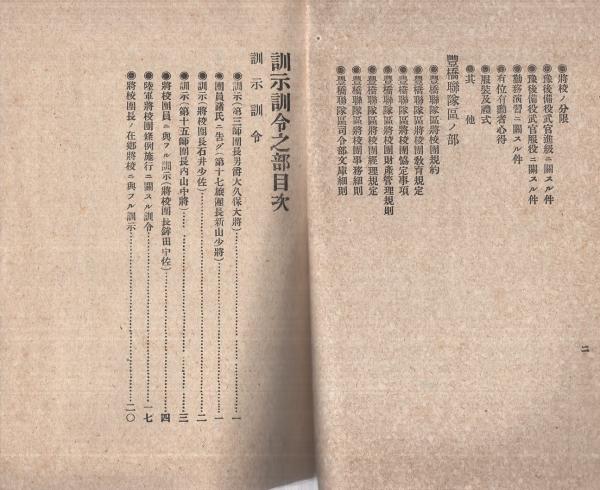 ●將校ノ分限
●豫後備役武官進級ニ關スル件
●豫後備役武官服役ニ關スル件
●勤務演習ニ關スル件
●有位有勳者心得
●服裝及禮式
●其他
豐橋聯隊區ノ部
●豐橋聯隊區將校團規約
●豐橋聯隊區將校團敎育規定
●豐橋聯隊區將校團協定事項
●豐橋聯隊區將校團財產管理規則
●豐橋聯隊區將校團經理規定
●豐橋聯隊區將校團事務細則
●豐橋聯隊區司令部文庫細則
二
訓示訓令之部目次
訓示訓令
●訓示(第三師團長男爵大久保大將)…一
●團員諸氏ニ告グ(第十七旅團長新山少將)…一
●訓示(將校團長石井少佐)…二
●訓示(第十五師團長內山中將)…三
●將校團員ニ與フル訓示(將校團長鉾田中佐)…四
●陸軍將校團條例施行ニ關スル訓令…一七
●將校團長ノ在鄕將校ニ與フル訓示…二〇